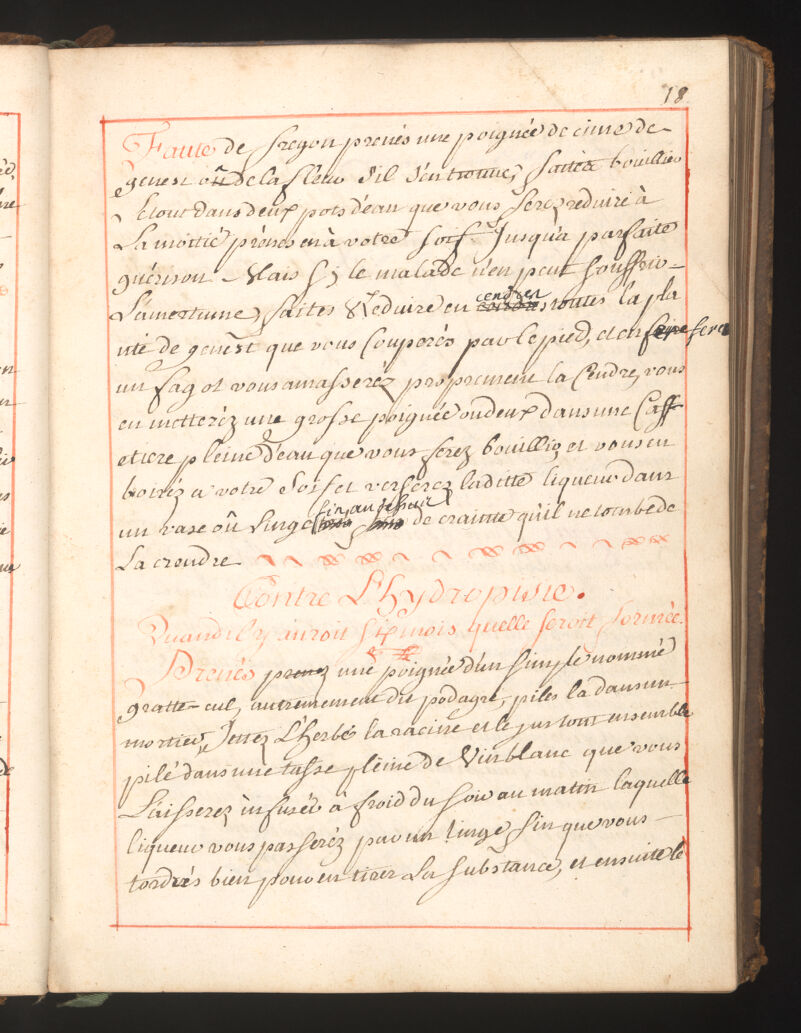 18
Faute de fregon prenés une poignée de cime de
genest où de la fleur s'il s'en trouve, faites bouillir
le tout dans deux pots d'eau que vous ferez reduire à
La moitié prenés en à votre soif Jusqu'a parfaite
guérison. Mais si le malade n'en peut souffrir
L'amertume, faites Reduire en cendres toutes la plan
nte de genest que vous Couperés par le pied, et en feres
un fagot vous amasserez proprement la Cendre, vous
en metteréz une grosse poignée ou deux dans une Caff
ettiere pleine d'eau que vous ferez bouillir, et vous en
boiréz a votre Soif et verserez laditte liqueur dans
un vase où linge fin au dessus de crainte qu'il ne tombe de
La cendre
Contre L'hydropisie.
Quand il y auroit six mois quelle seroit formée.
Prenés une poignée d'un simple nommé
gratte-cul, autrement dit podagre, piles la dans un
mortier, Jettez L'herbe la racine et le jus tout ensemble
pilé dans une tasse pleine de Vin blanc que vous
Laisserez infuser à froid du soir au matin laquelle
liqueur vous passeréz par un linge fin que vous
tordrés bien pour en tirer La substance, et ensuite le